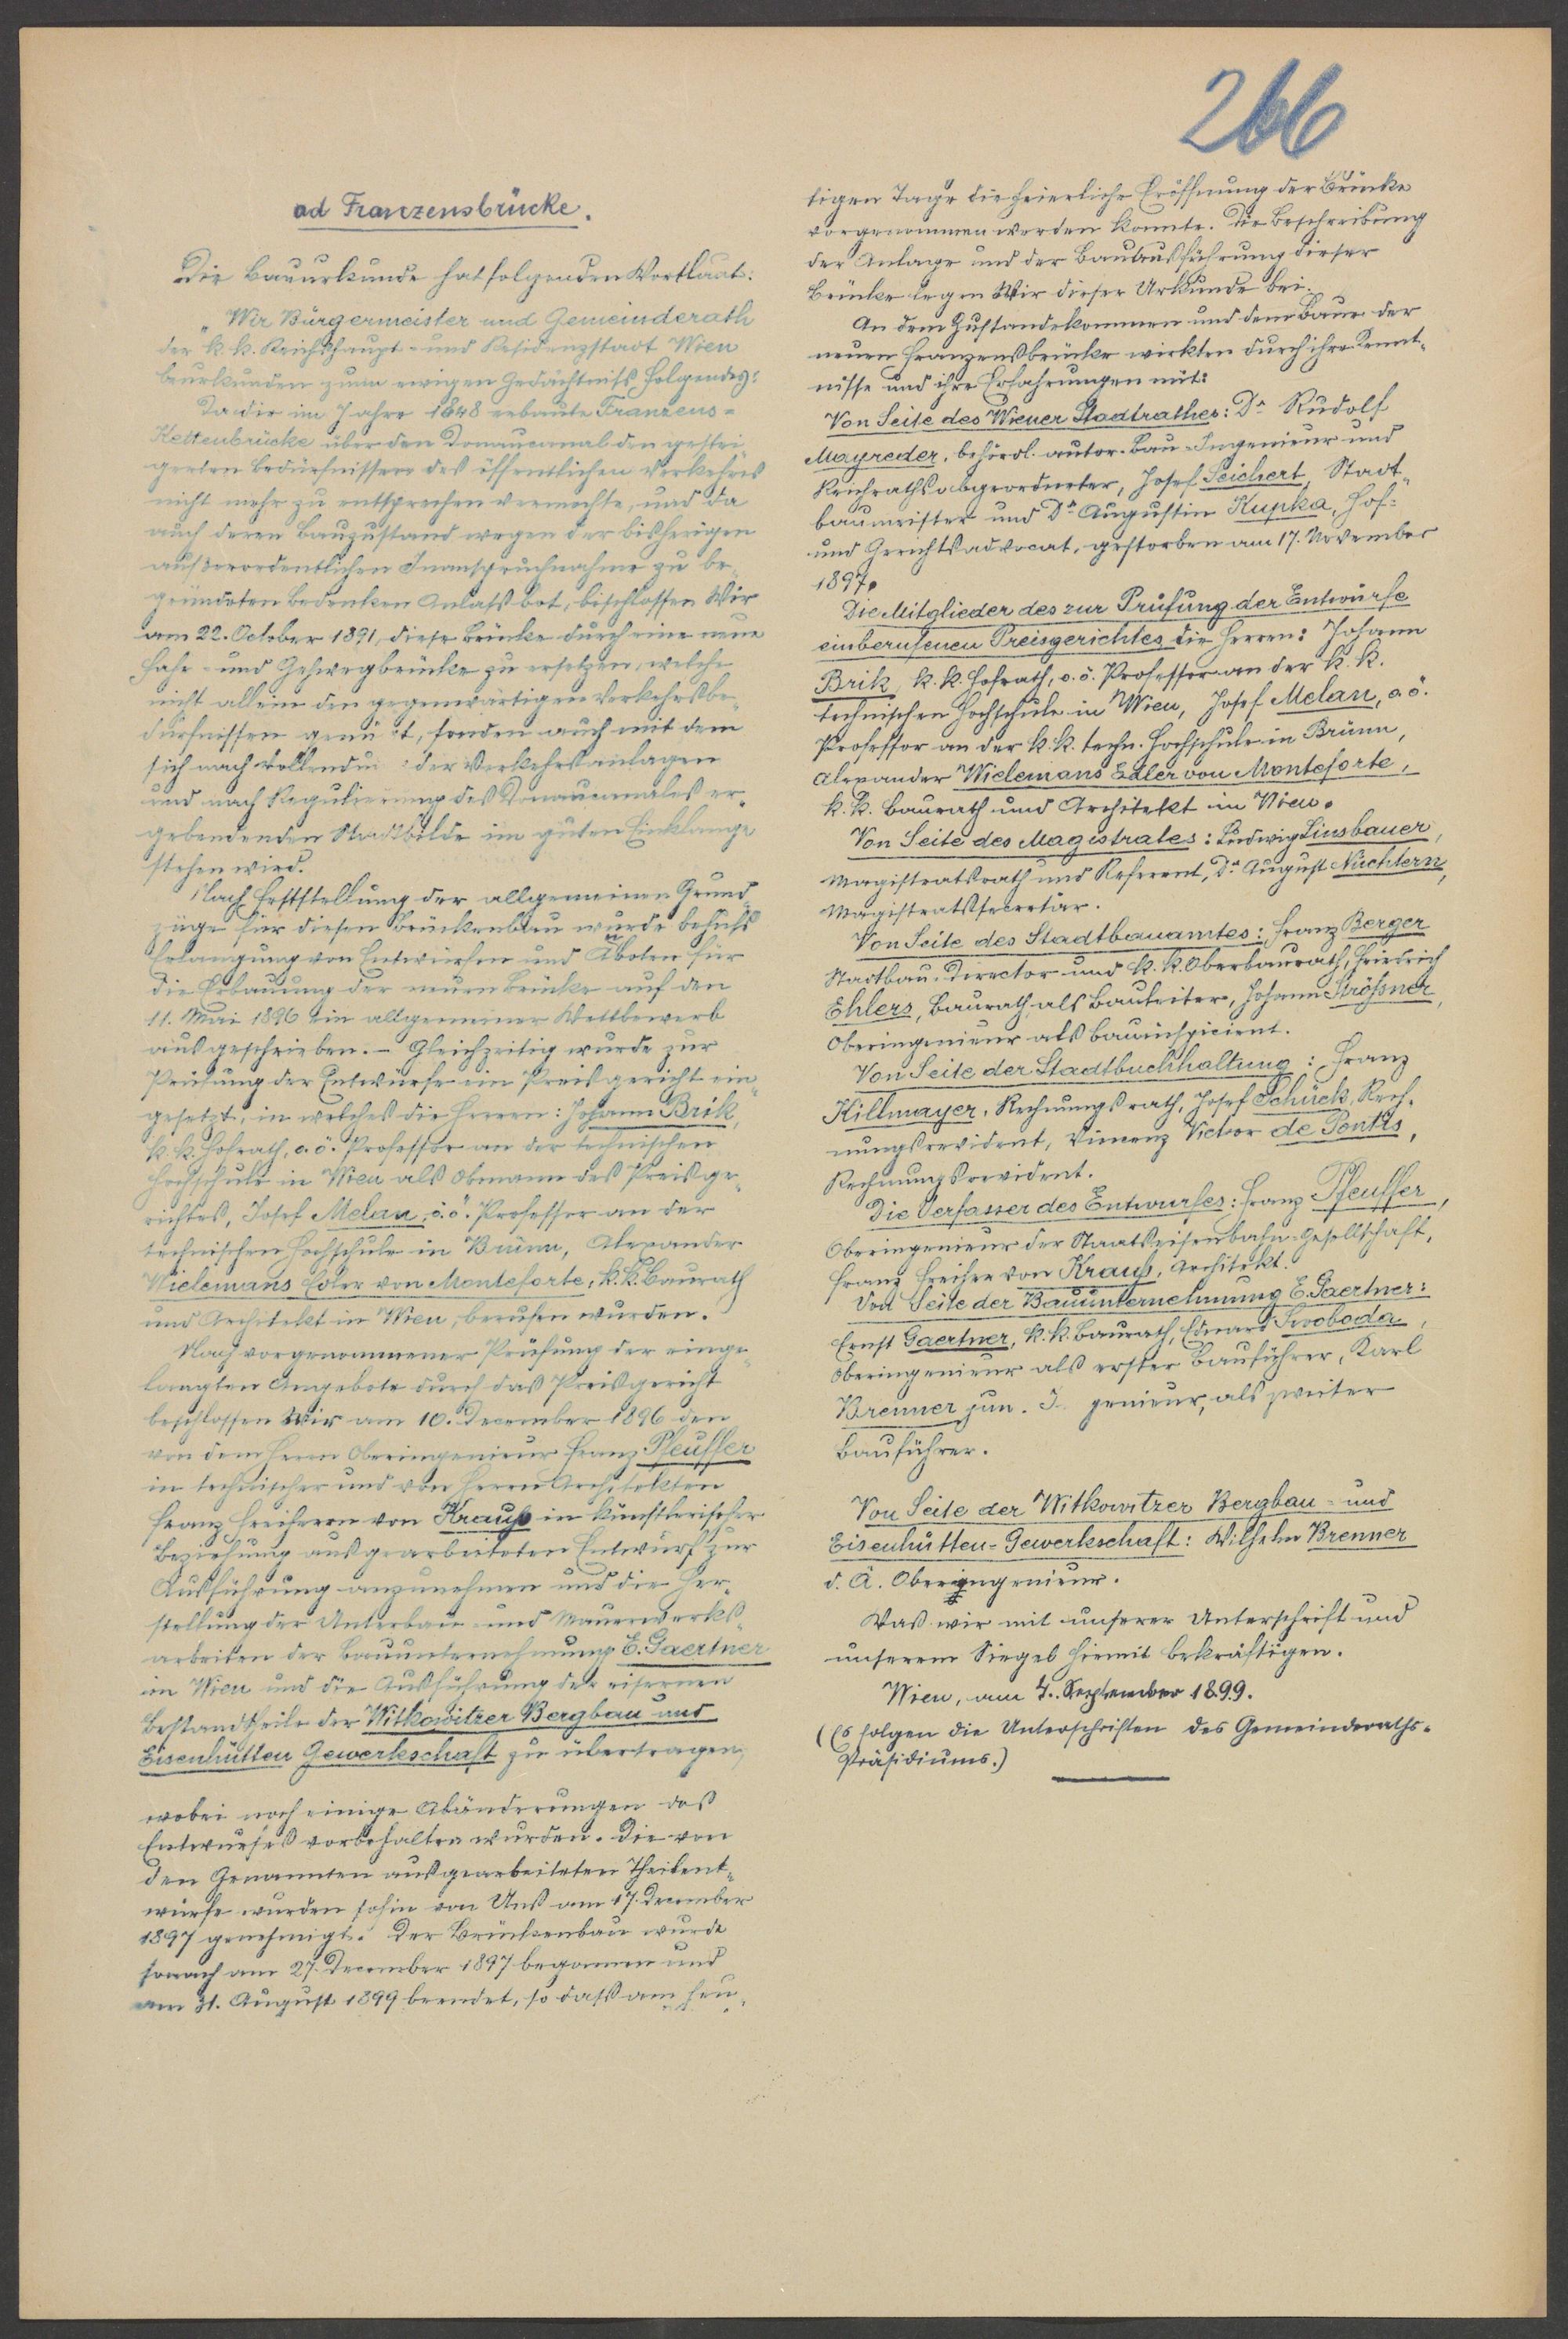 266
ad Franzensbrücke.
Die Bauurkunde hat folgenden Wortlaut:
„Wir Bürgermeister und Gemeinderath
der k. k. Reichshaupt- und Residenzstadt Wien
beurkunden zum ewigen Gedächtniß folgendes:
Da die im Jahre 1848 erbaute Franzens-
Kettenbrücke über den Donaucanal den gestei-
gerten Bedürfnissen des öffentlichen Verkehres
nicht mehr zu entsprechen vermochte, und da
auch deren Bauzustand wegen der bisherigen
außerordentlichen Inanspruchnahme zu be-
gründeten Bedenken Anlaß bot, beschlossen Wir
am 22. October 1891, diese Brücke durch eine neue
Fahr- und Gehwegbrücke zu ersetzen, welche
nicht allein den gegenwärtigen Verkehrsbe-
dürfnissen genü t, sonden auch mit dem
sich nach Vollendu der Verkehrsanlagen
und nach Regulierung des Donaucanales er-
gebendenden Stadtbilde im guten Einklange
stehen wird.
Nach Feststellung der allgemeinen Grund-
züge für diesen Brückenbau wurde behufs
Erlangung von Entwürfen und Anboten für
die Erbauung der neuen Brücke auf den
11. Mai 1896 ein allgemeiner Wettbewerb
ausgeschrieben. – Gleichzeitig wurde zur
Prüfung der Entwürfe ein Preisgericht ein-
gesetzt, in welches die Herren: Johann Brik,
k. k. Hofrath, o. ö. Professor an der technischen
Hochschule in Wien als Obmann des Preisge-
richtes, Josef Melan, o. ö. Professor an der
technischen Hochschule in Brünn, Alexander
Wielemans Edler von Monteforte, k. k. Baurath
und Architekt in Wien, berufen wurden.
Nach vorgenommener Prüfung der einge-
langten Angebote durch das Preisgericht
beschlossen Wir am 10. December 1896 den
von dem Herrn Oberingenieur Franz Pfeuffer
in technischer und von Herrn Architekten
Franz Freiherrn von Krauß in künstlerischer
Beziehung ausgearbeiteten Entwurf zur
Ausführung anzunehmen und die Her-
stellung der Unterbau- und Mauerwerks-
arbeiten der Bauunternehmung E. Gaertner
in Wien und die Ausführung der eisernen
Bestandtheile der Witkowitzer Bergbau und
Eisenhütten Gewerkschaft zu übertragen,
wobei noch einige Abänderungen des
Entwurfes vorbehalten wurden. Die von
den Genannten ausgearbeiteten Theilent-
würfe wurden sohin von Uns am 17. December
1897 genehmigt. Der Brückenbau wurde
sonach am 27. December 1897 begonnen und
am 31. August 1899 beendet, so daß am heu-
tigen Tage die feierliche Eröffnung der Brücke
vorgenommen werden konnte. Die Beschreibung
der Anlage und der Bauausführung dieser
Brücke legen Wir dieser Urkunde bei.
An dem Zustandekommen und dem Baue der
neuen Franzensbrücke wirkten durch ihre Kennt-
nisse und ihre Erfahrungen mit:
Von Seite des Wiener Stadtrathes: Dr. Rudolf
Mayreder, behördl. autor. Bau-Ingenieur und
Reichrathsabgeordneter, Josef Seichert, Stadt-
baumeister und Dr. Augustin Kupka, Hof-
und Gerichtsadvocat, gestorben am 17. November
1897.
Die Mitglieder des zur Prüfung der Entwürfe
einberufenen Preisgerichtes die Herren: Johann
Brik, k. k. Hofrath, o. ö. Professor an der k. k.
technischen Hochschule in Wien, Josef Melan, o. ö.
Professor an der k. k. techn. Hochschule in Brünn,
Alexander Wielemans Edler von Monteforte,
k. k. Baurath und Architekt in Wien.
Von Seite des Magistrates: Ludwig Linsbauer,
Magistratsrath und Referent, Dr. August Nüchtern,
Magistratssecretär.
Von Seite des Stadtbauamtes: Franz Berger
Stadtbau-Director und k. k. Oberbaurath, Friedrich
Ehlers, Baurath als Bauleiter, Johann Strößner,
Oberingenieur als Bauinspicient.
Von Seite der Stadtbuchhaltung: Franz
Killmayer, Rechnungsrath, Josef Schück, Rech-
nungsrevident, Vincenz Victor de Pontis,
Rechnungsrevident.
Die Verfasser des Entwurfes: Franz Pfeuffer,
Oberingenieur der Staatseisenbahn-Gesellschaft,
Franz Freiherr von Krauß, Architekt.
Von Seite der Bauunternehmung E. Gaertner:
Ernst Gaertner, k. k. Baurath, Eduard Swoboda,
Oberingenieur als erster Bauführer, Karl
Brenner jun. I genieur, als zweiter
Bauführer.
Von Seite der Witkowitzer Bergbau- und
Eisenhütten-Gewerkschaft: Wilhelm Brenner
d. Ä. Oberingenieur.
Was wir mit unserer Unterschrift und
unserem Siegel hiermit bekräftigen.
Wien, am 4. September 1899.
(Es folgen die Unterschriften des Gemeinderaths-
Präsidiums.)